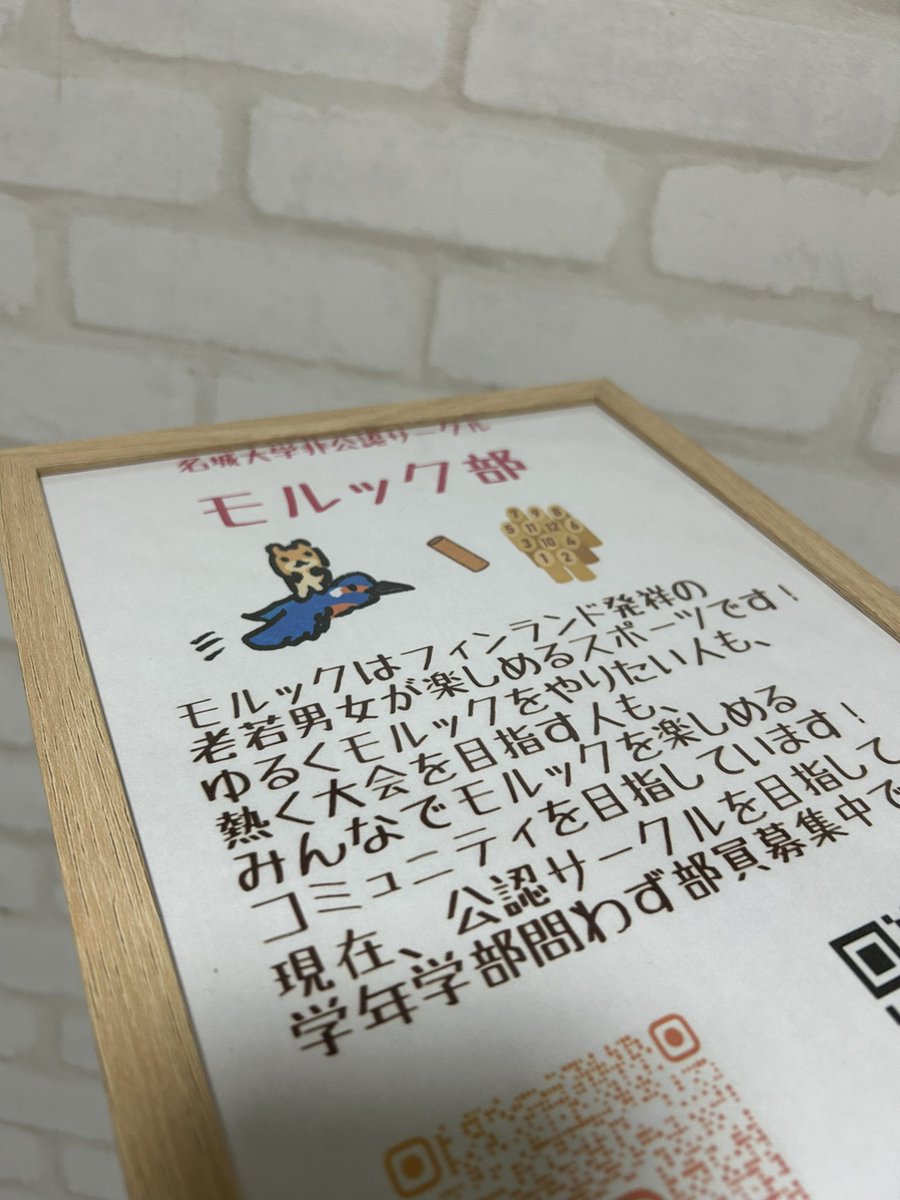 名城大学非公認サークル
モルック部
7 9 8
5 11 12 6
3 10 4
1 2
モルックはフィンランド発祥の
老若男女が楽しめるスポーツです！
ゆるくモルックをやりたい人も、
熱く大会を目指す人も、
みんなでモルックを楽しめる
コミュニティを目指しています！
現在、公認サークルを目指して
学年学部問わず部員募集中で